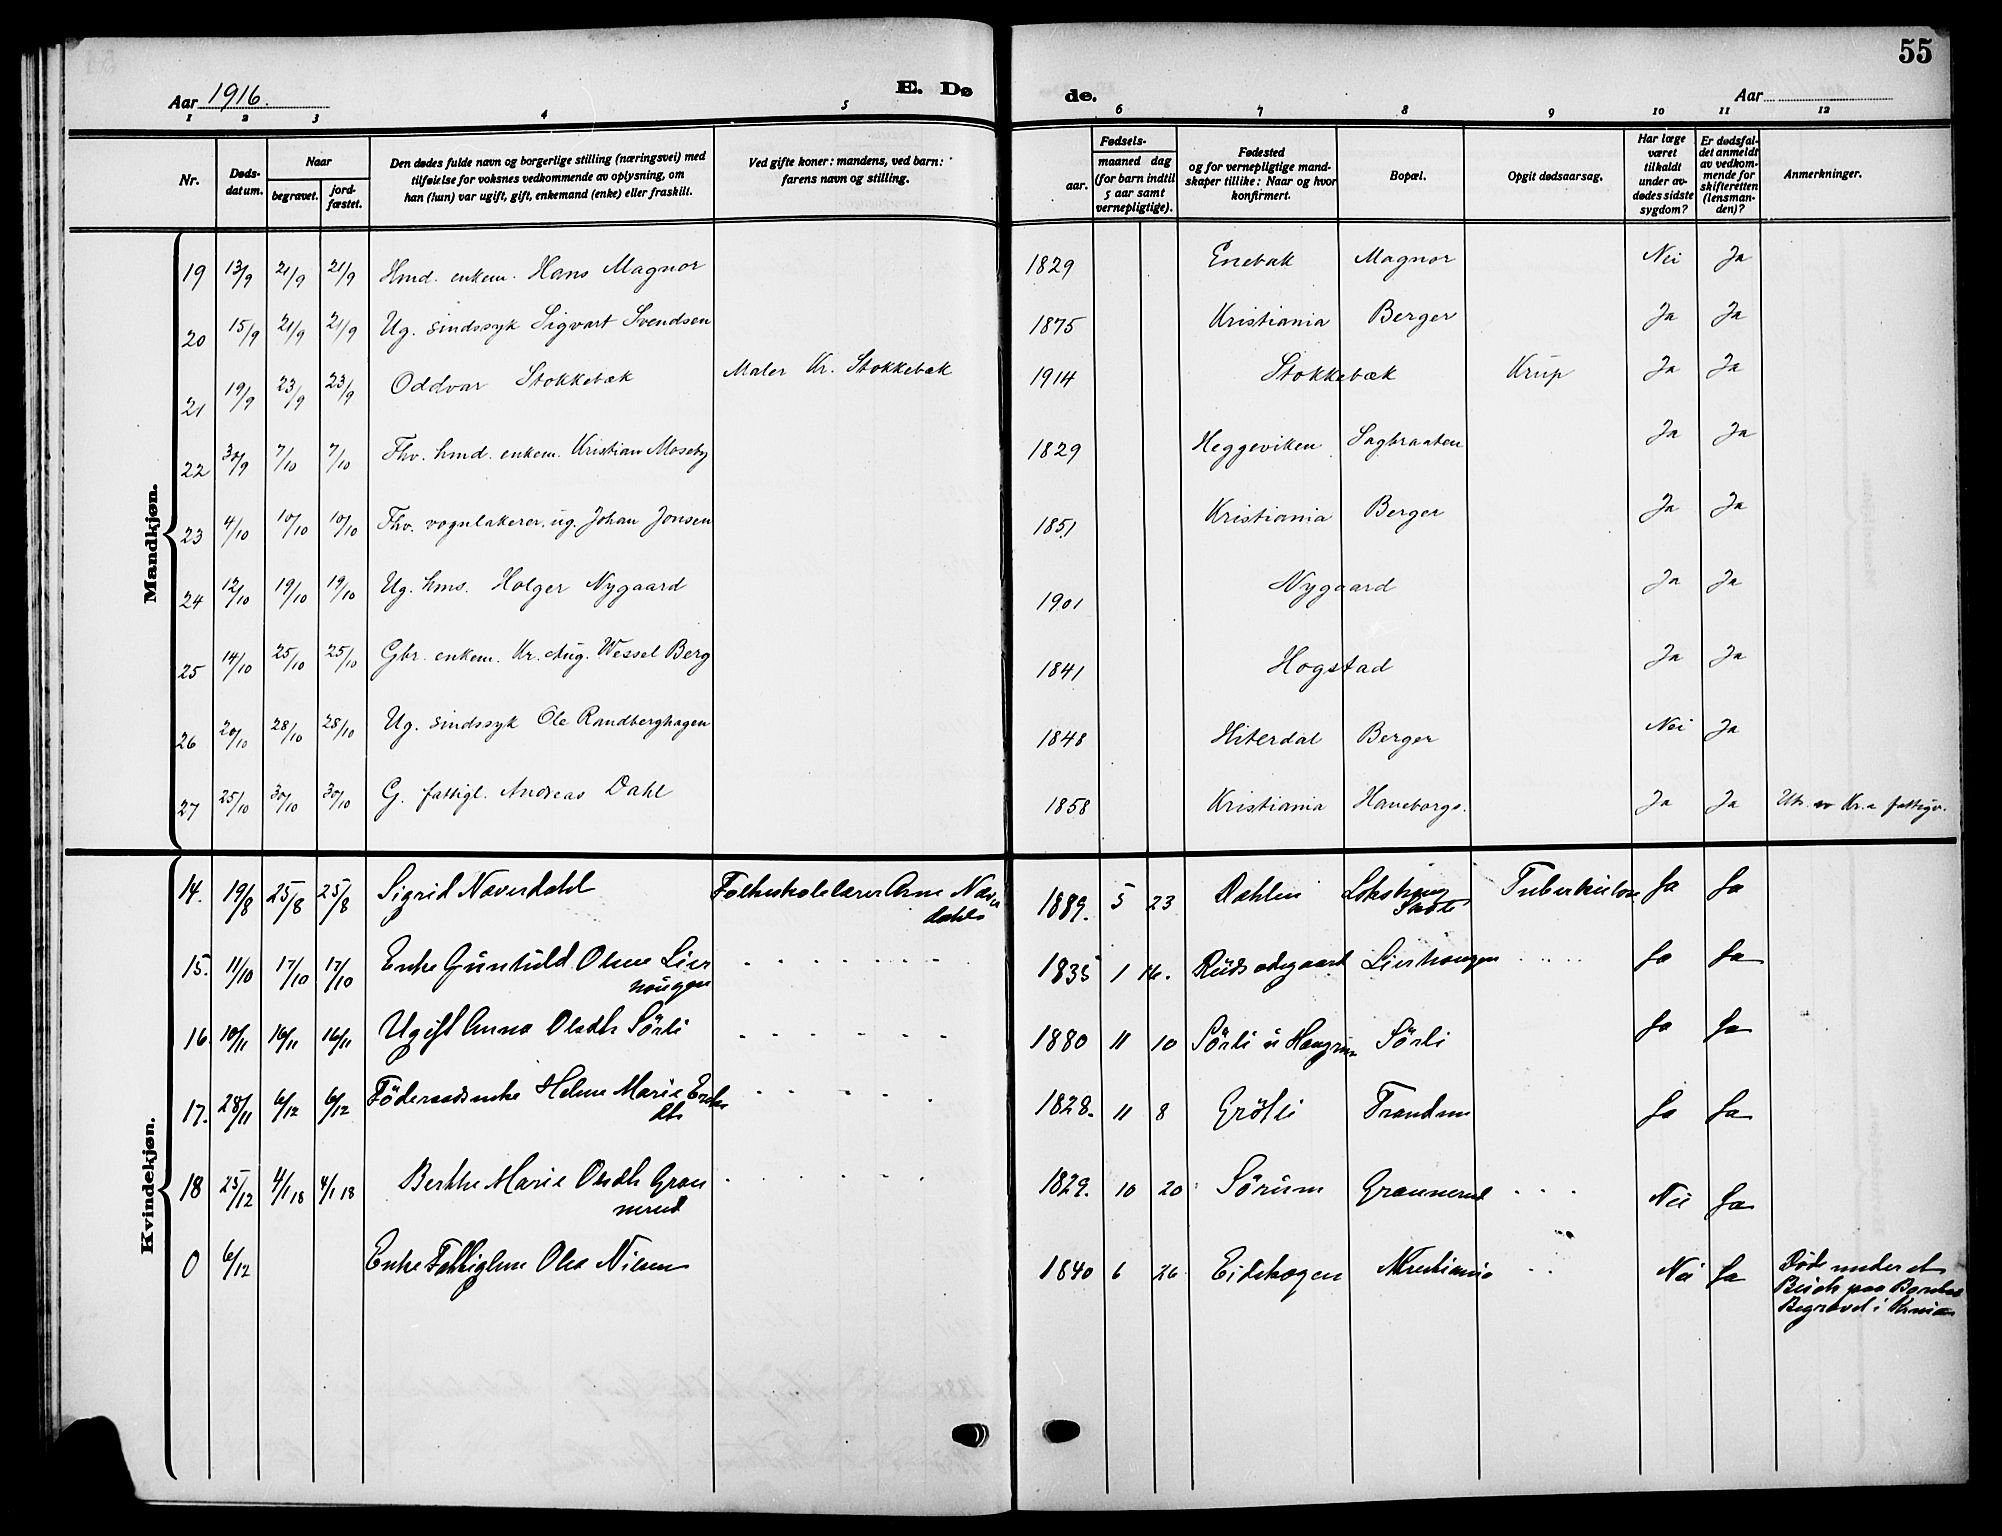 55
Aar 1916.
E. Dø
de.
Aar
1 2 3 4 5 6 7 8 9 10 11 12
Nr.
Døds-
datum.
Naar
begravet.
jord-
fæstet.
Den dødes fulde navn og borgerlige stilling (næringsvei) med
tilføielse for voksnes vedkommende av oplysning, om
han (hun) var ugift, gift, enkemand (enke) eller fraskilt.
Ved gifte koner: mandens, ved barn:
farens navn og stilling.
Fødsels-
aar.
maaned dag
(for barn indtil
5 aar samt
vernepligtige).
Fødested
og for vernepligtige mand-
skaper tillike: Naar og hvor
konfirmert.
Bopæl.
Opgit dødsaarsag.
Har læge
været
tilkaldt
under av-
dødes sidste
sygdom?
Er dødsfal-
det anmeldt
av vedkom-
mende for
skifteretten
(lensman-
den)?
Anmerkninger.
Mandkjøn.
19 13/9 21/9 21/9 Hmd. enkem. Hans Magnor 1829 Enebak Magnor Nei Ja
20 15/9 21/9 21/9 Ug. sindssyk Sigvart Svendsen 1875 Kristiania Berger Ja Ja
21 19/9 23/9 23/9 Oddvar Stokkebæk Maler Kr. Stokkebæk 1914 Stokkebæk Krup Ja Ja
22 30/9 7/10 7/10 Fhv. hmd. enkem. Kristian Moseby 1829 Heggeviken Sagbraaten Ja Ja
23 4/10 10/10 10/10 Fhv. vognlakerer. ug. Johan Jonsen 1851 Kristiania Berger Ja Ja
24 12/10 19/10 19/10 Ug. hms. Holger Nygaard 1901 Nygaard Ja Ja
25 14/10 25/10 25/10 Gbr. enkem. Kr. Aug. Wessel Berg 1841 Hogstad Ja Ja
26 20/10 28/10 28/10 Ug. sindssyk Ole Randberghagen 1848 Hiterdal Berger Nei Ja
27 25/10 30/10 30/10 G. fattigl. Andreas Dahl 1858 Kristiania Haneborgs. Ja Ja Uts. av Kr.a fattigv.
Kvindekjøn.
14. 19/8 25/8 25/8 Sigrid Naverdahl Folkeskolelærer Arne Naver
dahls 1889. 5 23 Dahlen Ja Ja
15. 11/10 17/10 17/10 Enke Gunhild Olsen Lier
haugen 1835 1 14. Rudsødegaard Lierhaugen Ja Ja
16. 10/11 16/11 16/11 Ugift Anna Olsdtr Sörli 1880 11 10 Sörli Sörli Ja Ja
17. 28/11 6/12 6/12 Föderaadsenke Helene Marie Eriks
dtr 1828. 11 8 Gröli Trandum Ja Ja
18 25/12 4/1 18 4/1 18 Berthe Marie Olsdtr Gran
nerud 1829. 10 20 Sörum Grannerud Nei Ja
0 6/12 Enke Fattiglem Olea Nilsen 1840 6 26 Eidskogen Kristiania Nei Ja Døde under et
Besök paa
Begravet i Krnia